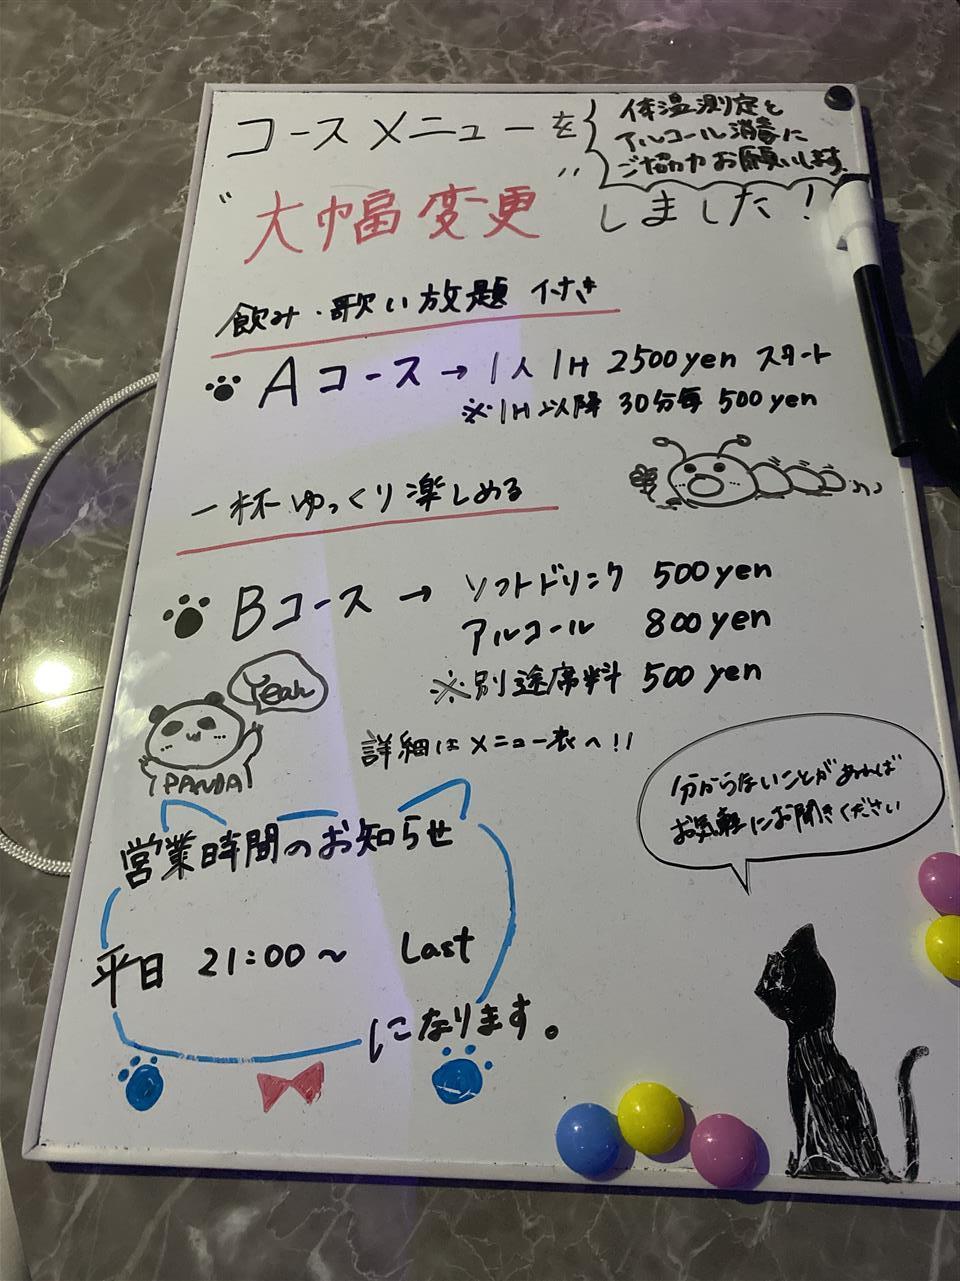 コースメニューを
体温測定と
アルコール消毒に
ご協力お願いします。
"大幅変更"しました!
飲み・歌い放題 付き
Aコース→1人1H 2500yen スタート
※1H以降 30分毎 500yen
一杯ゆっくり楽しめる
Bコース→ ソフトドリンク 500yen
アルコール 800yen
※別途席料 500yen
Yeah
PANDA
詳細はメニュー表へ!!
分からないことがあれば
お気軽にお聞きください
営業時間のお知らせ
平日 21:00〜 Last
になります。